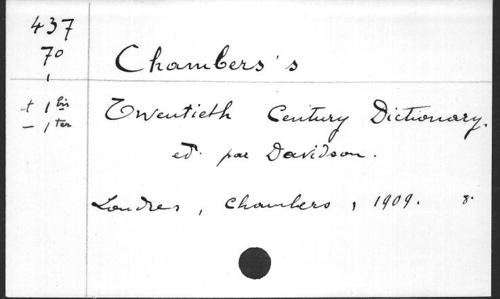 437
70
1
Chambers's
+ 1 bis
- 1 ter
Twentieth Century Dictionary.
ed. par Davidson.
Londres, Chambers, 1909. 8°